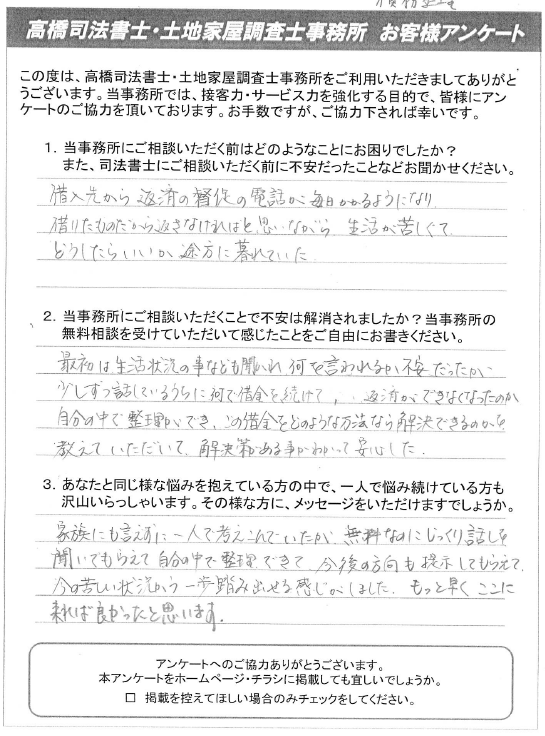 高橋司法書士・土地家屋調査士事務所 お客様アンケート
この度は、高橋司法書士・土地家屋調査士事務所をご利用いただきましてありがと
うございます。当事務所では、接客力・サービス力を強化する目的で、皆様にアン
ケートのご協力を頂いております。お手数ですが、ご協力下されば幸いです。
1. 当事務所にご相談いただく前はどのようなことにお困りでしたか？
また、司法書士にご相談いただく前に不安だったことなどお聞かせください。
借入先から返済の督促の電話が毎日かかるようになり
借りたものだから返さなければと思いながら 生活が苦しくて
どうしたらいいか途方に暮れていた
2. 当事務所にご相談いただくことで不安は解消されましたか？当事務所の
無料相談を受けていただいて感じたことをご自由にお書きください。
最初は生活状況の事なども聞かれ何を言われるか不安だったが
少しずつ話しているうちに何で借金を続けて、返済ができなくなったのか
自分の中で整理ができ、この借金をどのような方法なら解決できるのかを
教えていただいて、解決策がある事がわかって安心した.
3. あなたと同じ様な悩みを抱えている方の中で、一人で悩み続けている方も
沢山いらっしゃいます。その様な方に、メッセージをいただけますでしょうか。
家族にも言えずに一人で考えこんでいたが、無料なのにじっくり話しを
聞いてもらえて自分の中で整理できて 今後の方向も提示してもらえて
今の苦しい状況から一歩踏み出せる感じがしました. もっと早くここに
来れば良かったと思います.
アンケートへのご協力ありがとうございます。
本アンケートをホームページ・チラシに掲載しても宜しいでしょうか。
□ 掲載を控えてほしい場合のみチェックをしてください。